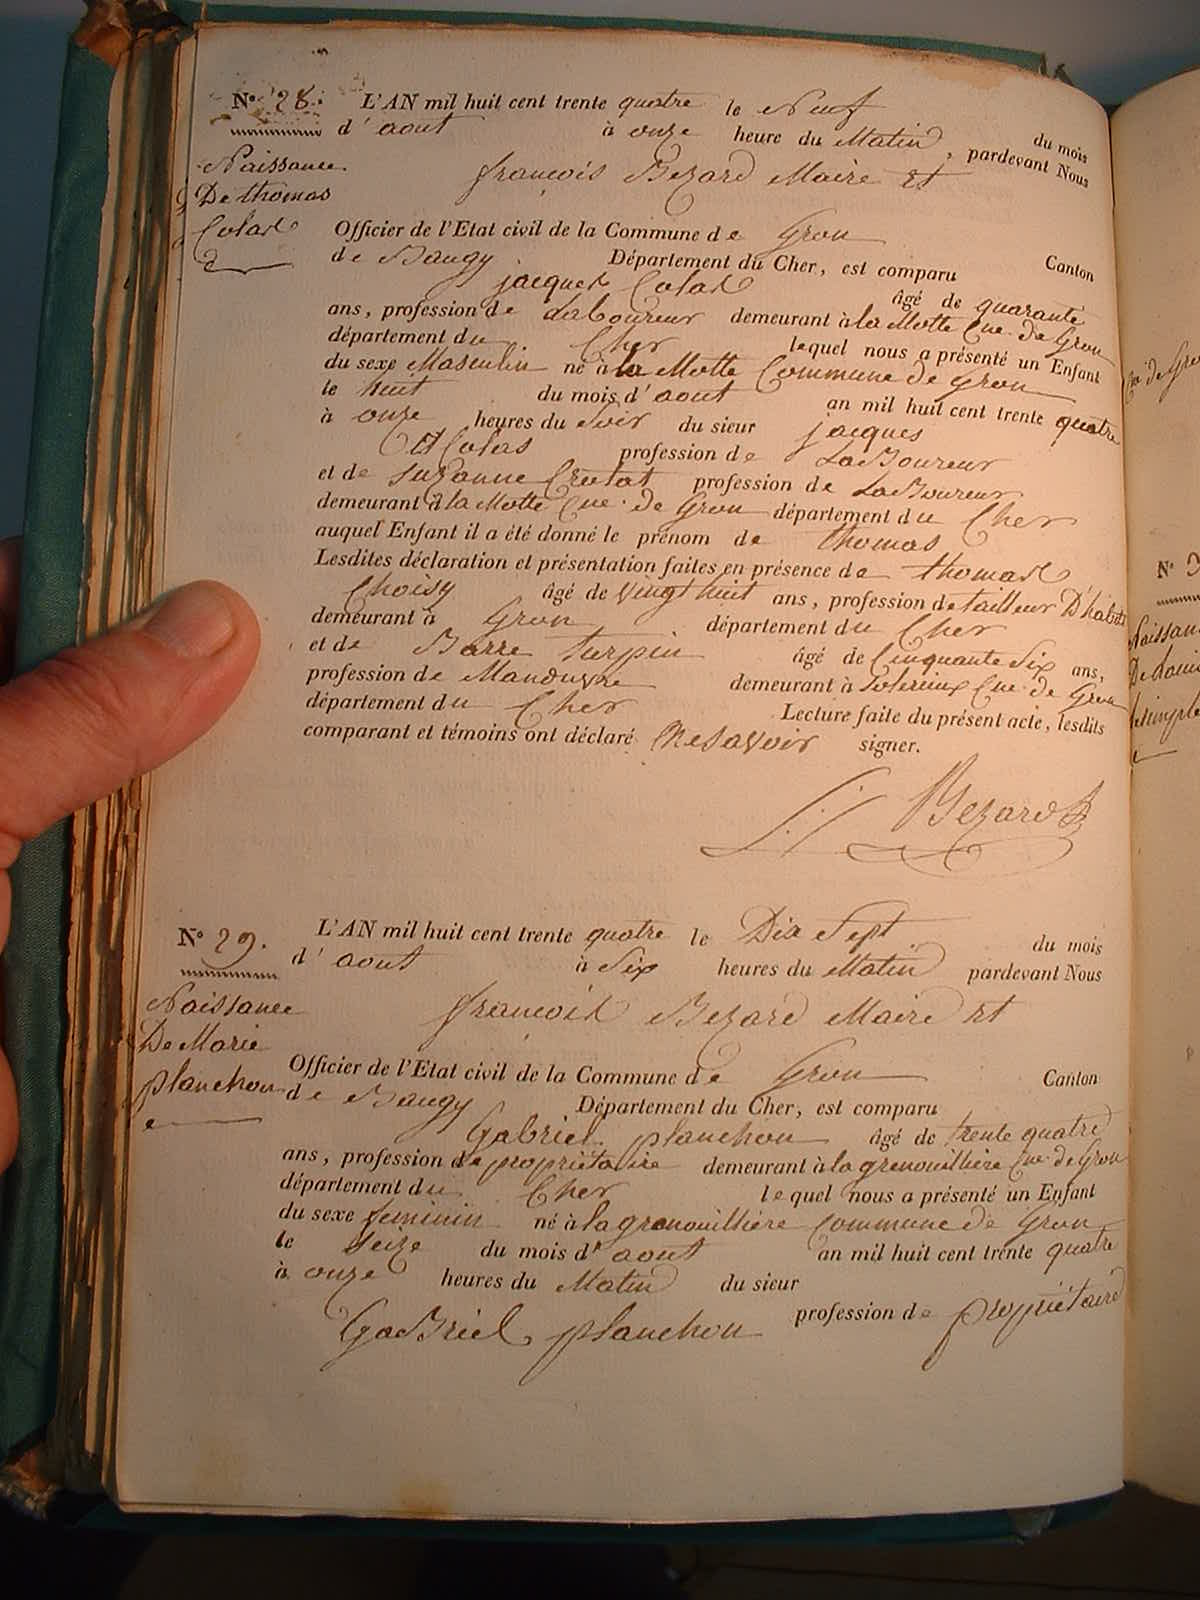 N° 28.
Naissance
De thomas
Colas
L'AN mil huit cent trente quatre le Neuf du mois
d'aout à onze heure du Matin, pardevant Nous
francois Bezard Maire Et
Officier de l'Etat civil de la Commune de Gron Canton
de Baugy Département du Cher, est comparu
jacques Colas âgé de quarante
ans, profession de Laboureur demeurant à la Motte Cne de Gron
département du Cher lequel nous a présenté un Enfant
du sexe Masculin né à la Motte Commune de Gron
le huit du mois d'aout an mil huit cent trente quatre
à onze heures du Soir du sieur jacques
Colas profession de LaBoureur
et de Suzanne profession de LaBoureur
demeurant à la Motte Cne de Gron département du Cher
auquel Enfant il a été donné le prénom de thomas
Lesdites déclaration et présentation faites en présence de thomas
Choisy âgé de Vingt huit ans, profession de tailleur D'habits
demeurant à Gron département du Cher
et de Barre turpin âgé de Cinquante Six ans,
profession de Manduvre demeurant à Cne de Gron
département du Cher Lecture faite du présent acte, lesdits
comparant et témoins ont déclaré Ne Savoir signer.
Bezard
N° 29.
Naissance
De Marie
planchon
L'AN mil huit cent trente quatre le Dix Sept du mois
d'aout à Six heures du Matin pardevant Nous
francois Bezard Maire Et
Officier de l'Etat civil de la Commune de Gron Canton
de Baugy Département du Cher, est comparu
Gabriel planchon âgé de trente quatre
ans, profession de propriétaire demeurant à la grenouillière Cne de Gron
département du Cher lequel nous a présenté un Enfant
du sexe feminin né à la grenouillière Commune de Gron
le Seize du mois d'aout an mil huit cent trente quatre
à onze heures du Matin du sieur
GaBriel planchon profession de propriétaire
Cne de Gro
N° 3
Naissan
De Louis